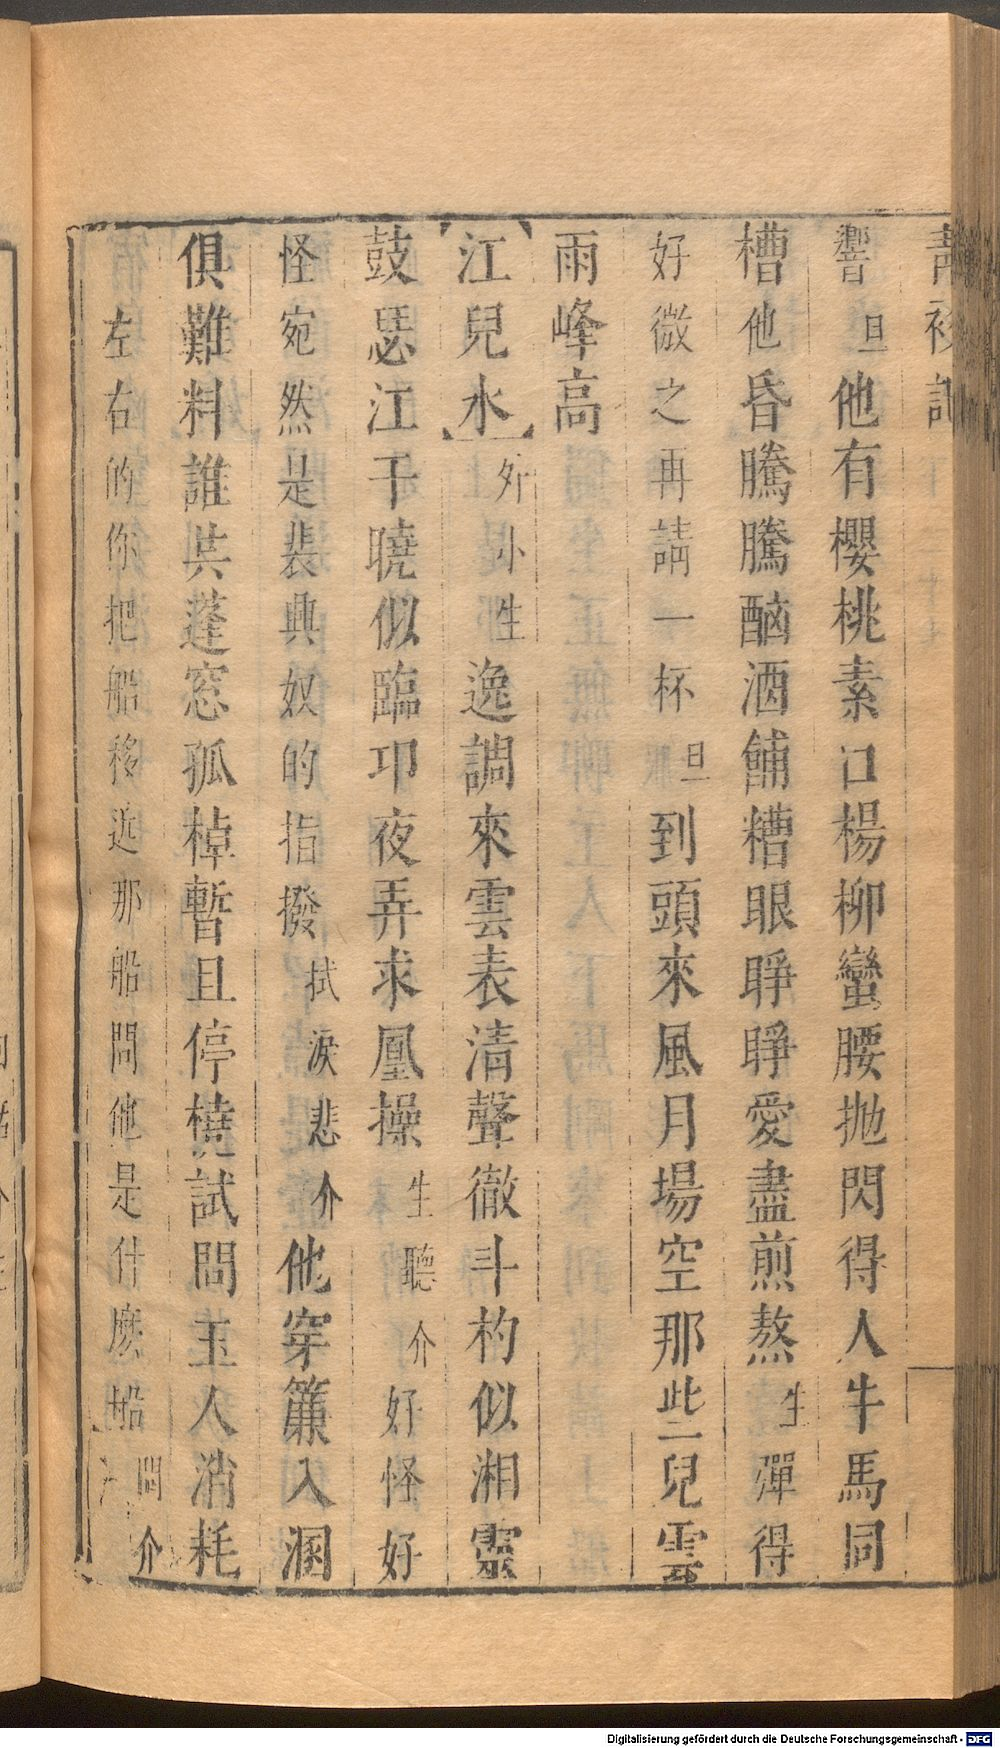 青衫記
響旦他有櫻桃素口楊柳蠻腰抛閃得人牛馬同
槽他昏騰騰酗酒餔糟眼睜睜愛盡煎熬生彈得
好微之再請一杯旦到頭來風月場空那些兒雲
雨峰高
江兒水外小生逸調來雲表清聲徹斗杓似湘靈
鼓瑟江干曉似臨卭夜弄求凰操生聽介好怪好
怪宛然是裴興奴的指撥拭淚悲介他穿簾入溷
俱難料誰共蓬窓孤棹暫且停橈試問主人消耗
左右的你把船移近那船問他是什麽船問介
Digitalisierung gefördert durch die Deutsche Forschungsgemeinschaft - DFG